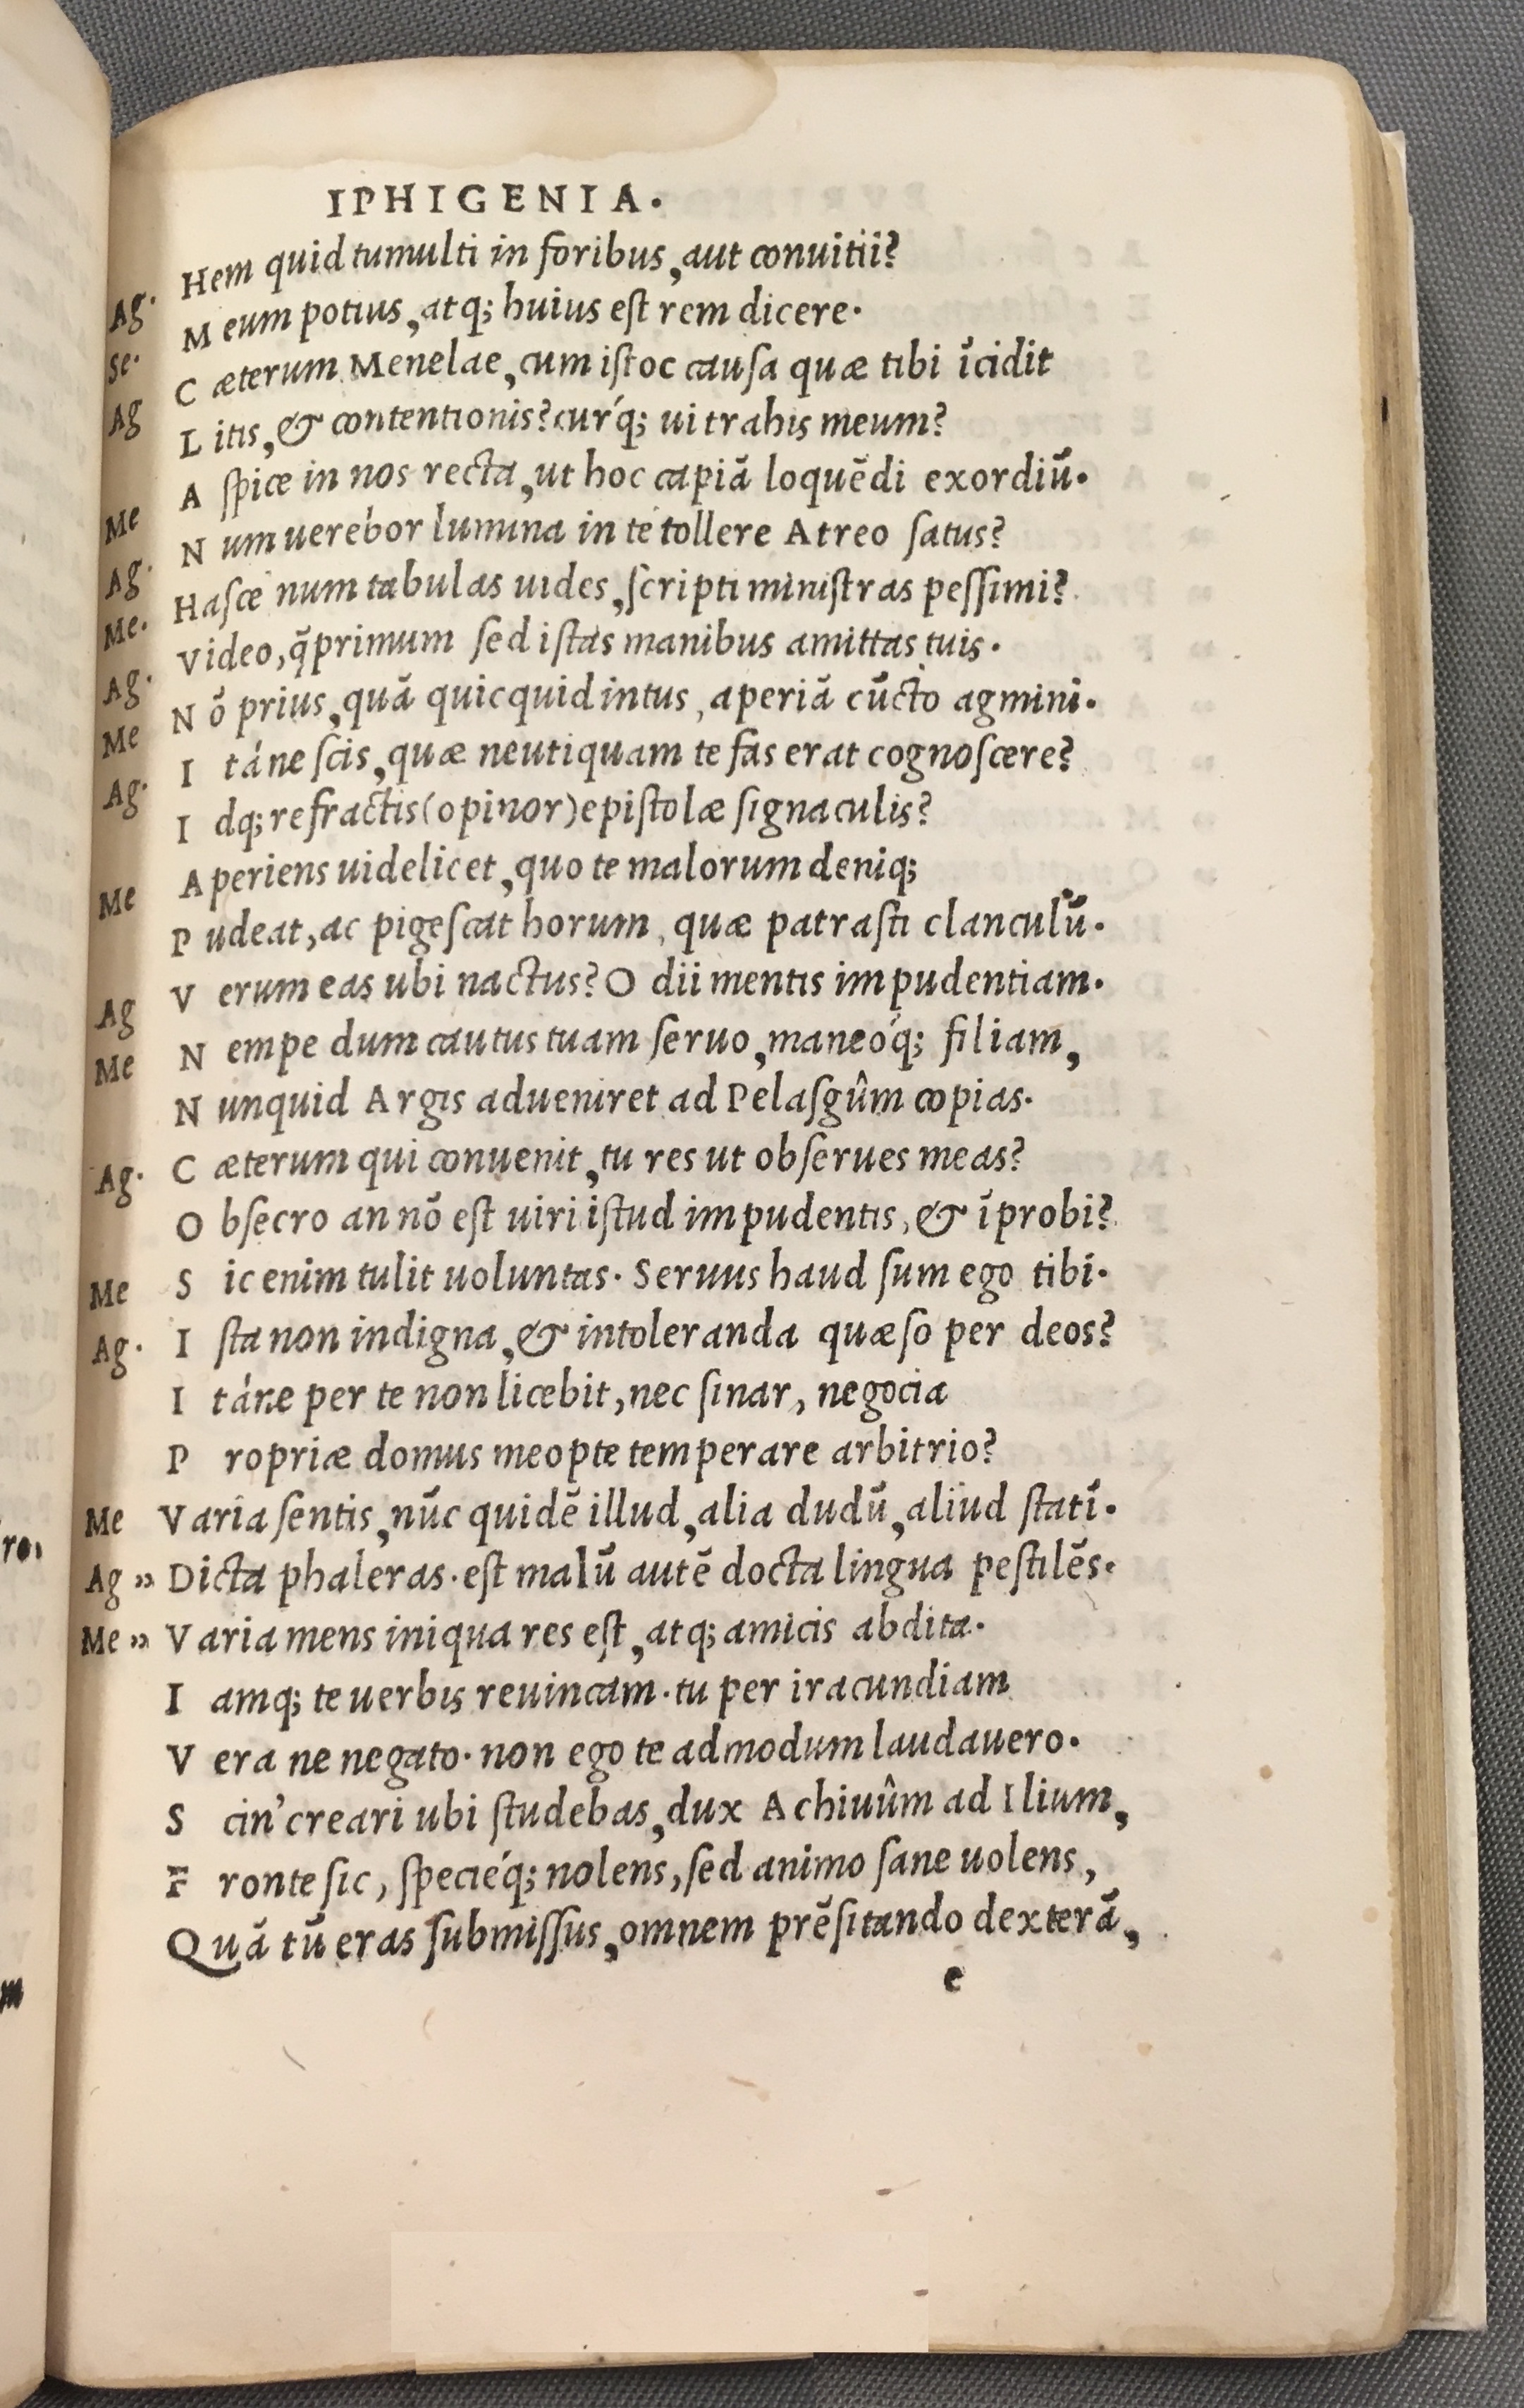 IPHIGENIA.
Ag. Hem quid tumulti in foribus, aut conuitii?
Se. Meum potius, atq; huius est rem dicere.
Ag Cæterum Menelae, cum istoc causa quæ tibi ĩcidit
Litis, & contentionis? cur'q; ui trahis meum?
Me Aspice in nos recta, ut hoc capiã loquẽdi exordiũ.
Ag. Num uerebor lumina in te tollere Atreo satus?
Me. Hasce num tabulas uides, scripti ministras pessimi?
Ag. Video, q̃primum sed istas manibus amittas tuis.
Me Nõ prius, quã quicquid intus, aperiã cũcto agmini.
Ag. Itáne scis, quæ neutiquam te fas erat cognoscere?
Idq; refractis (opinor) epistolæ signaculis?
Me Aperiens uidelicet, quo te malorum deniq;
Pudeat, ac pigescat horum, quæ patrasti clanculũ.
Ag Verum eas ubi nactus? O dii mentis impudentiam.
Me Nempe dum cautus tuam seruo, maneó'q; filiam,
Nunquid Argis adueniret ad Pelasgûm copias.
Ag. Cæterum qui conuenit, tu res ut obserues meas?
Obsecro an nõ est uiri istud impudentis, & ĩprobi?
Me Sic enim tulit uoluntas. Seruus haud sum ego tibi.
Ag. Ista non indigna, & intoleranda quæso per deos?
Itáne per te non licebit, nec sinar, negocia
Propriæ domus meopte temperare arbitrio?
Me Varia sentis, nũc quidẽ illud, alia dudũ, aliud statĩ.
Ag » Dicta phaleras. est malũ autẽ docta lingua pestilẽs.
Me » Varia mens iniqua res est, atq; amicis abdita.
Iamq; te uerbis reuincam. tu per iracundiam
Vera ne negato. non ego te admodum laudauero.
Scin' creari ubi studebas, dux Achiuûm ad Ilium,
Fronte sic, specié'q; nolens, sed animo sane uolens,
Quã tũ eras submissus, omnem prẽsitando dexterã,
e